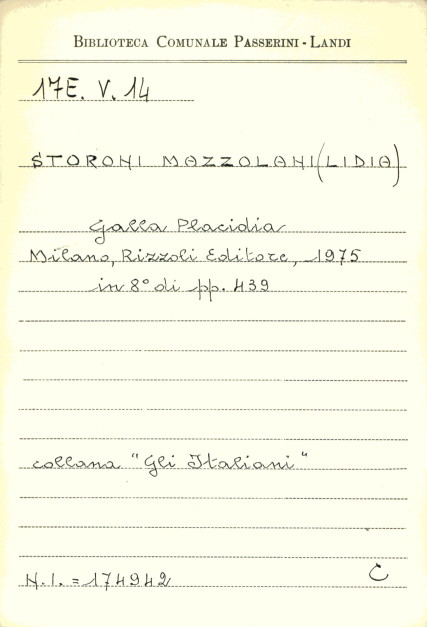 BIBLIOTECA COMUNALE PASSERINI - LANDI
17E. V. 14
STORONI MAZZOLANI (LIDIA)
Galla Placidia
Milano, Rizzoli Editore, 1975
in 8° di pp. 439
collana "Gli Italiani"
N.I. = 174942
C